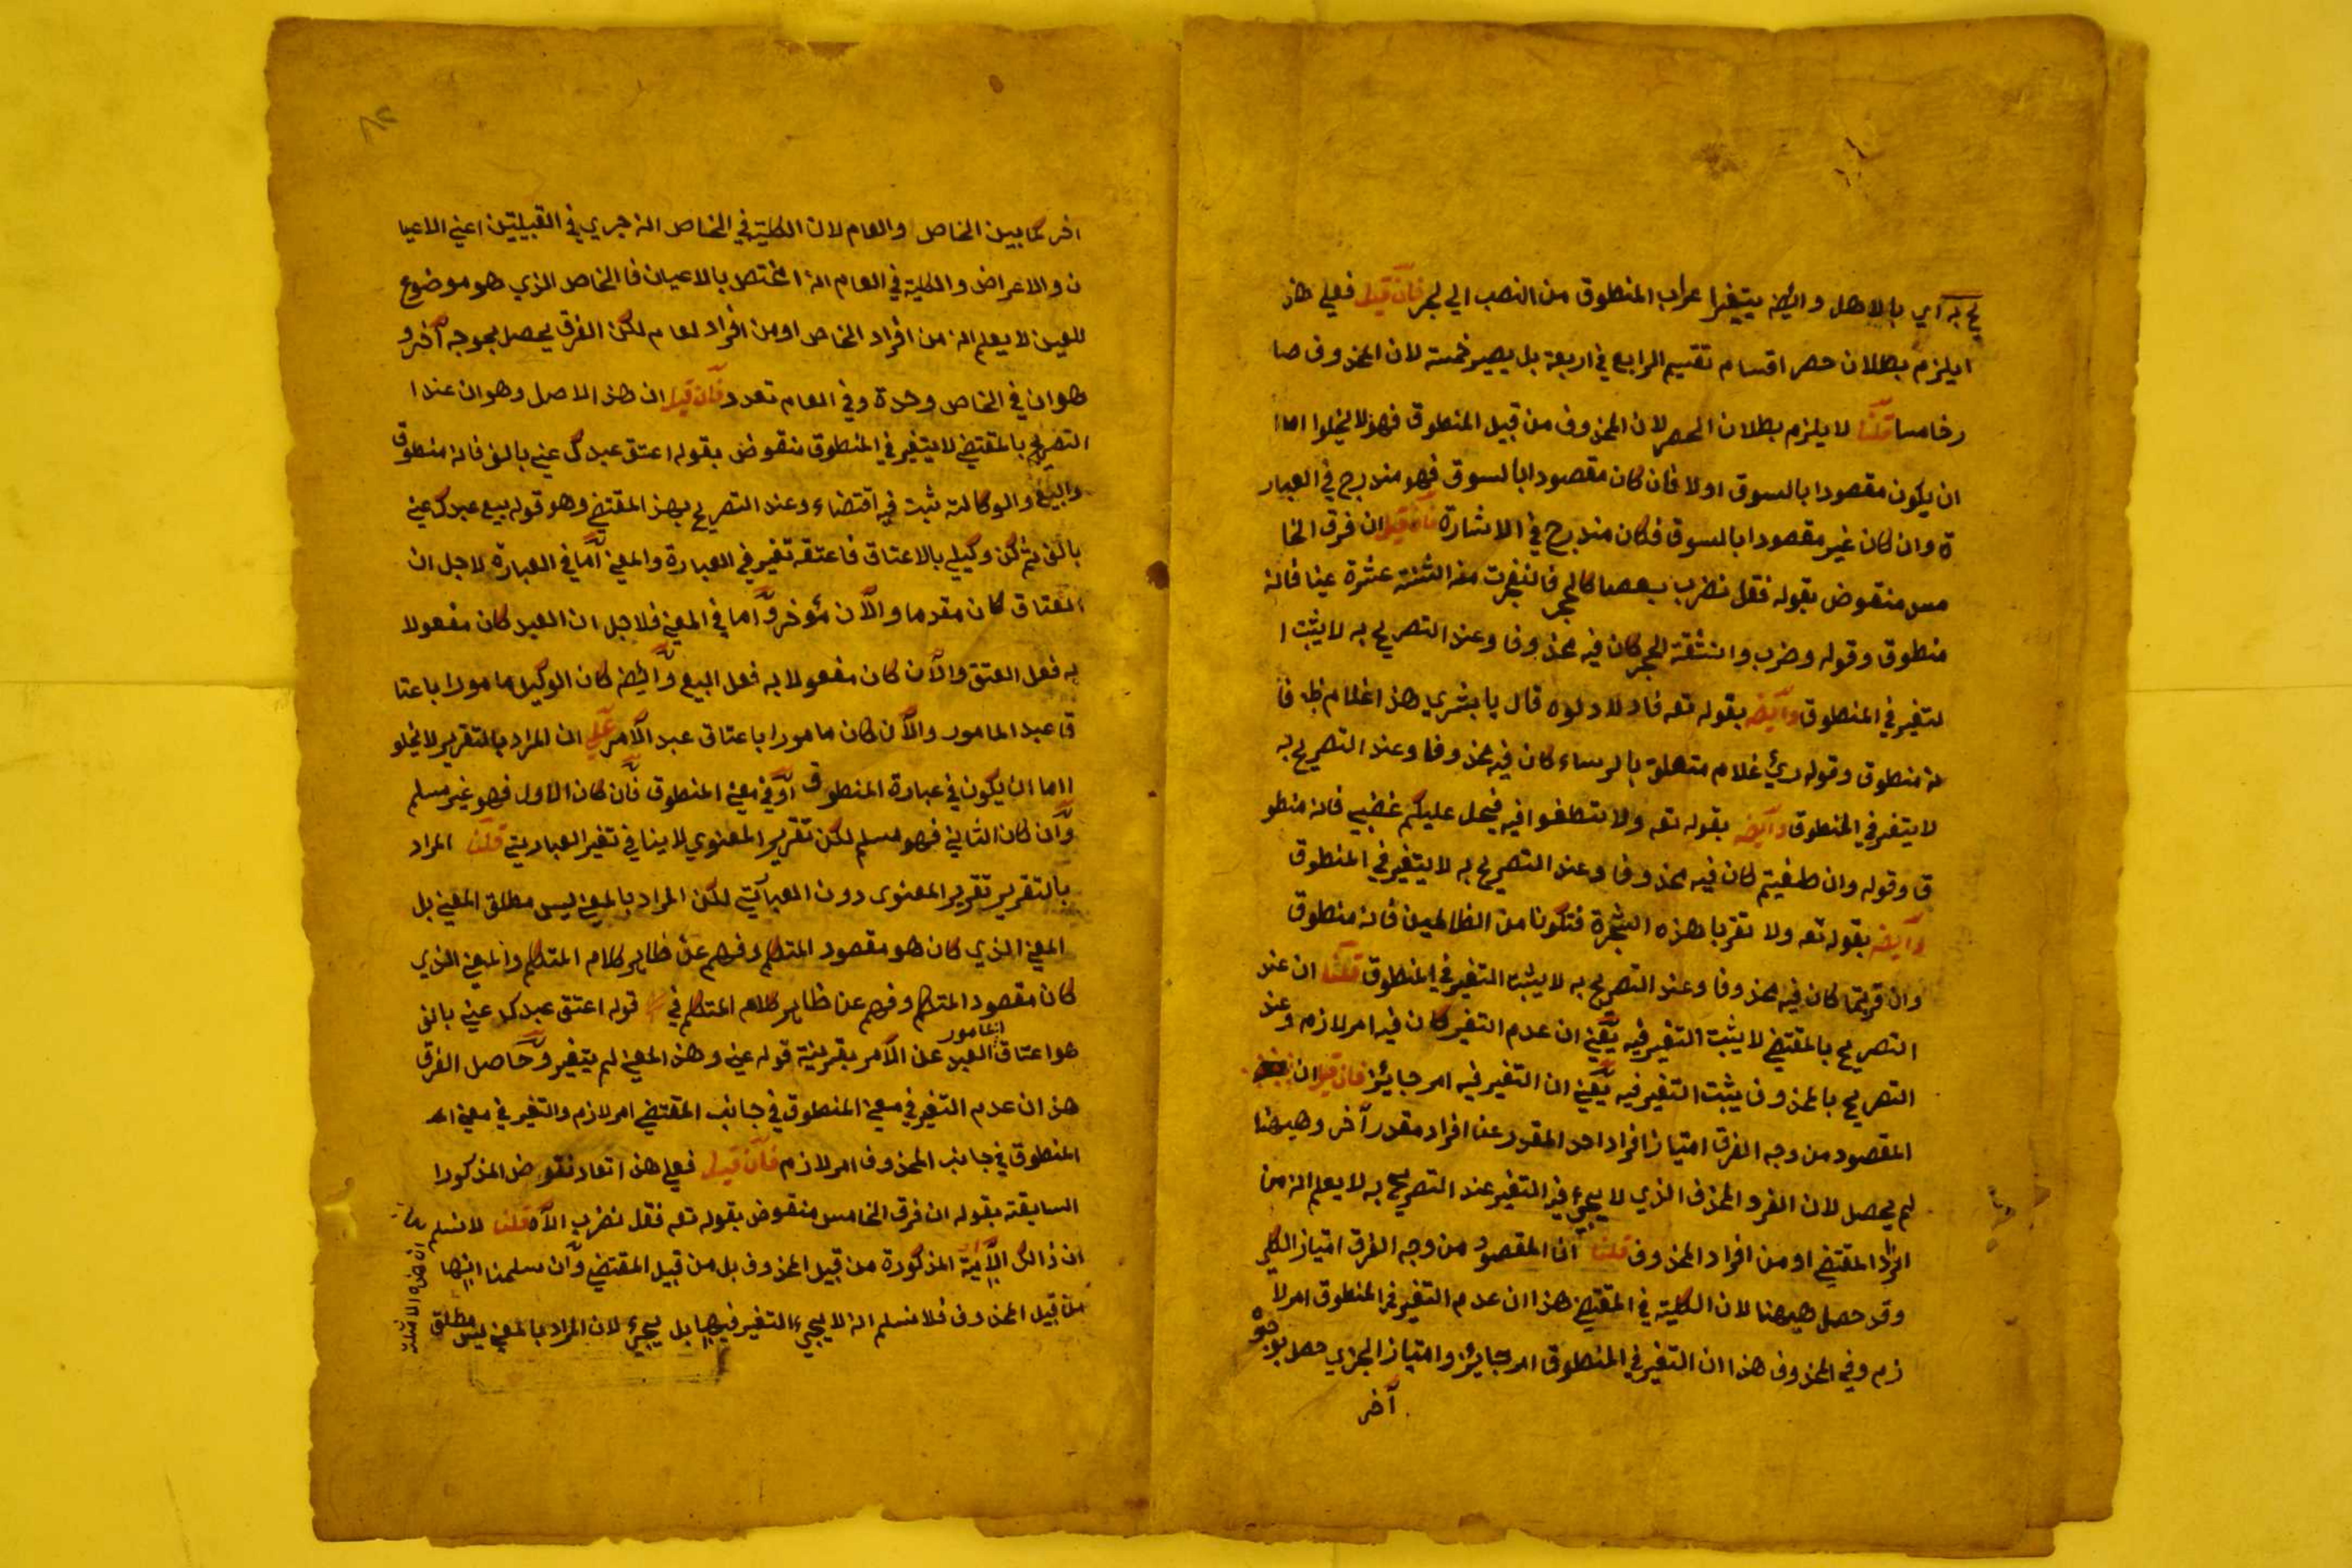 يح به اي بالاهل وايضا يتغير اعراب المنطوق من النصب الي الجر فان قيل فعلي هذ
ايلزم بطلان حصر اقسام تقسيم الرابع في اربعة بل يصير خمسة لان المحذوف صا
رخامسا قلنا لا يلزم بطلان الحصر لان المحذوف من قبيل المنطوق فهو لا يخلوا اما
ان يكون مقصودا بالسوق اولا فان كان مقصودا بالسوق فهو مندرج في العبار
ة وان كان غير مقصودا بالسوق فكان مندرج في الاشارة فان قيل ان فرق الخا
مس منقوض بقوله فقل نضرب بعصا كالحجر فانفجرت منه اثنتة عشرة عينا فانه
منطوق وقوله وضرب وانشقة الحجر كان فيه محذوفا وعند التصريح به لا يثبت ا
لتغير في المنطوق وايضا بقوله تعه فادلا دلوه قال يا بشري هذا غلام
نه منطوق وقوله رئ غلام متعلق بالرساء كان فيه محذوفا وعند التصريح به
لا يتغير في المنطوق وايضا بقوله تعه ولا تطغوا فيه فيحل عليكم غضبي فانه منطو
ق وقوله وان طغيتم كان فيه محذوفا وعند التصريح به لا يتغير في المنطوق
وايضا بقوله تعه ولا تقربا هذه الشجرة فتكونا من الظالمين فانه منطوق
وان قربتما كان فيه محذوفا وعند التصريح به لا يثبت التغير في المنطوق قلنا ان عند
التصريح بالمقتضي لا يثبت التغير فيه يعني ان عدم التغير كان فيه امر لازم وعند
التصريح بالمحذوف يثبت التغير فيه يعني ان التغير فيه امر جايئز فان قيل ان
المقصود من وجه الفرق امتياز افراد احد المقدر عن افراد مقدر آخر وهيهنا
لم يحصل لان الفرد المحذف الذي لا يجيء فيه التغير عند التصريح به لا يعلم انه من
افراد المقتضي او من افراد المحذوف قلنا ان المقصود من وجه الفرق امتياز الكلي
وقد حصل هيهنا لان الكلية في المقتضي هذا ان عدم التغير في المنطوق امر لا
زم وفي المحذوف هذا ان التغير في المنطوق امر جايئز وامتياز الجزي حصل بوجوه
آخر
آخر كما بين الخاص والعام لان الكلية في الخاص انه جري في القبيلتين اعني الاعيا
ن والاعراض والكلية في العام انه اختص بالاعيان فا الخاص الذي هو موضوع
للعين لا يعلم انه من افراد الخاص او من افراد لعام لكن الفرق يحصل بوجه آخر و
هو ان في الخاص وحدة وفي العام تعدد فان قيل ان هذ الاصل وهو ان عند ا
التصريح بالمقتضي لا يتغير في المنطوق منقوض بقوله اعتق عبدك عني بالف فانه منطوق
والبيع والوكالة ثبت فيه اقتضاء وعند التصريح بهذ المقتضي وهو قوله بيع عبدك عني
بالف ثم كن وكيلي بالاعتاق فاعتقه تغير في العبارة والمعني اما في العبارة لاجل ان
اعتاق كان مقدما والآن مؤخر واما في المعني فلاجل ان العبد كان مفعولا
به فعل العتق والآن كان مفعولا به فعل البيع وايضا كان الوكيل مامورا باعتا
ق عبد المامور والآن كان مامورا باعتاق عبد الآمر علي ان المراد بالتقرير لا يخلو
ااما ان يكون في عبارة المنطوق او في معني المنطوق فان كان الاول فهو غير مسلم
وان كان الثاني فهو مسلم لكن تقرير المعنوي لا ينافي تغير العباريتي قلنا المراد
بالتقرير تقرير المعنوي دون العباريتي لكن المراد بالمعني ليس مطلق المعني بل
المعني الذي كان هو مقصود المتكلم وفهم عن ظاهر كلام المتكلم والمعني الذي
كان مقصود المتكلم وفهم عن ظاهر كلام المتكلم في قوله اعتق عبدك عني بالف
هو اعتاق المامور العبد عن الآمر بقرينة قوله عني وهذ المعني لم يتغير وحاصل الفرق
هذ ان عدم التغير في معني المنطوق في جانب المقتضي امر لازم والتغير في معني
المنطوق في جانب المحذوف امر لازم فان قيل فعلي هذ اتعاد نقوض المذكورا
السابقة بقوله ان فرق الخامس منقوض بقوله تعه فقل نضرب الآه قلنا لا نسلم
ان ذالك الآية المذكورة من قبيل المحذوف بل من قبيل المقتضي وان سلمنا انها
من قبيل المحذوف فلا نسلم انه لا يجيء التغير فيها بل يجيء لان المراد بالمعني ليس مطلق
ان هذه الامثلة